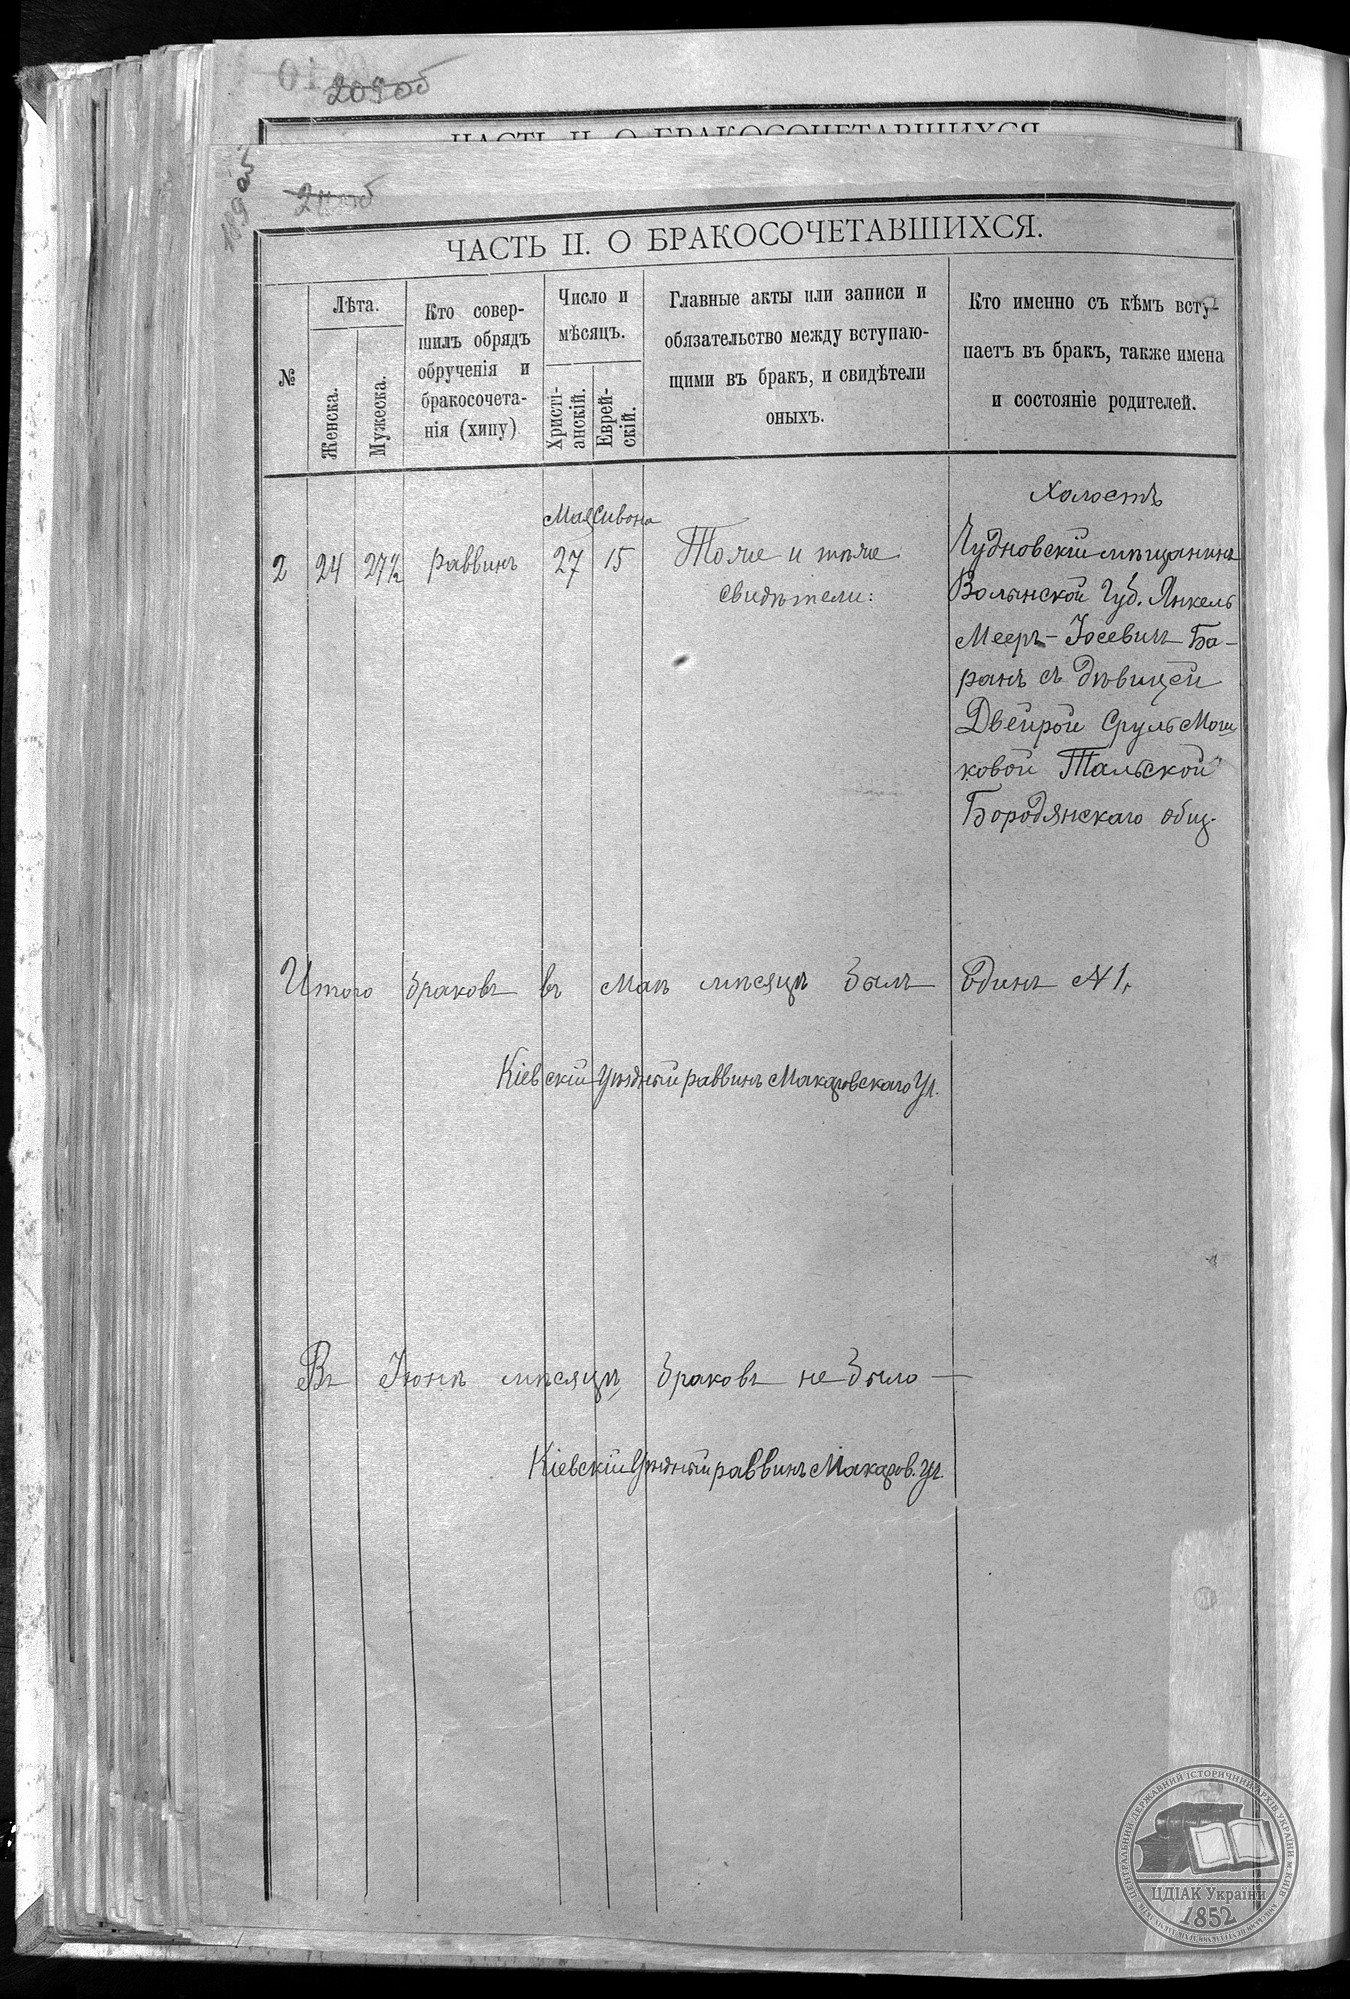 209об
ЧАСТЬ II. О БРАКОСОЧЕТАВШИХСЯ.
ЧАСТЬ II. О БРАКОСОЧЕТАВШИХСЯ.
№
Лѣта.
Женска.
Мужеска.
Кто совер-
шилъ обрядъ
обрученія и
бракосочета-
нія (хипу)
Число и
мѣсяцъ.
Христі-
анскій.
Еврей-
скій.
Главные акты или записи и
обязательство между вступаю-
щими въ брак, и свидѣтели
оныхъ.
Кто именно съ кѣмъ всту-
паетъ въ бракъ, также имена
и состояніе родителей.
Мая Сивона
2 24 27½ раввинъ 27 15
Тоже и тѣже
свидѣтели:
Холостъ
Чудновскій мѣщанинъ
Волынской Губ. Янкель
Мееръ-Іосевичъ Ба-
ранъ съ дѣвицей
Двейрой Сруль Мош
ковой Тальской
Бородянскаго общ.
Итого браковъ въ маѣ мѣсяцѣ былъ одинъ № 1.
Кіевскій Уѣздный раввинъ Макаровскаго Уч.
Въ Іюнѣ мѣсяцѣ браковъ не было —
Кіевскій Уѣздный раввинъ Макаров. Уч.
ЦЕНТРАЛЬНИЙ ДЕРЖАВНИЙ ІСТОРИЧНИЙ АРХІВ УКРАЇНИ м. КИЇВ
ЦДІАК України
1852